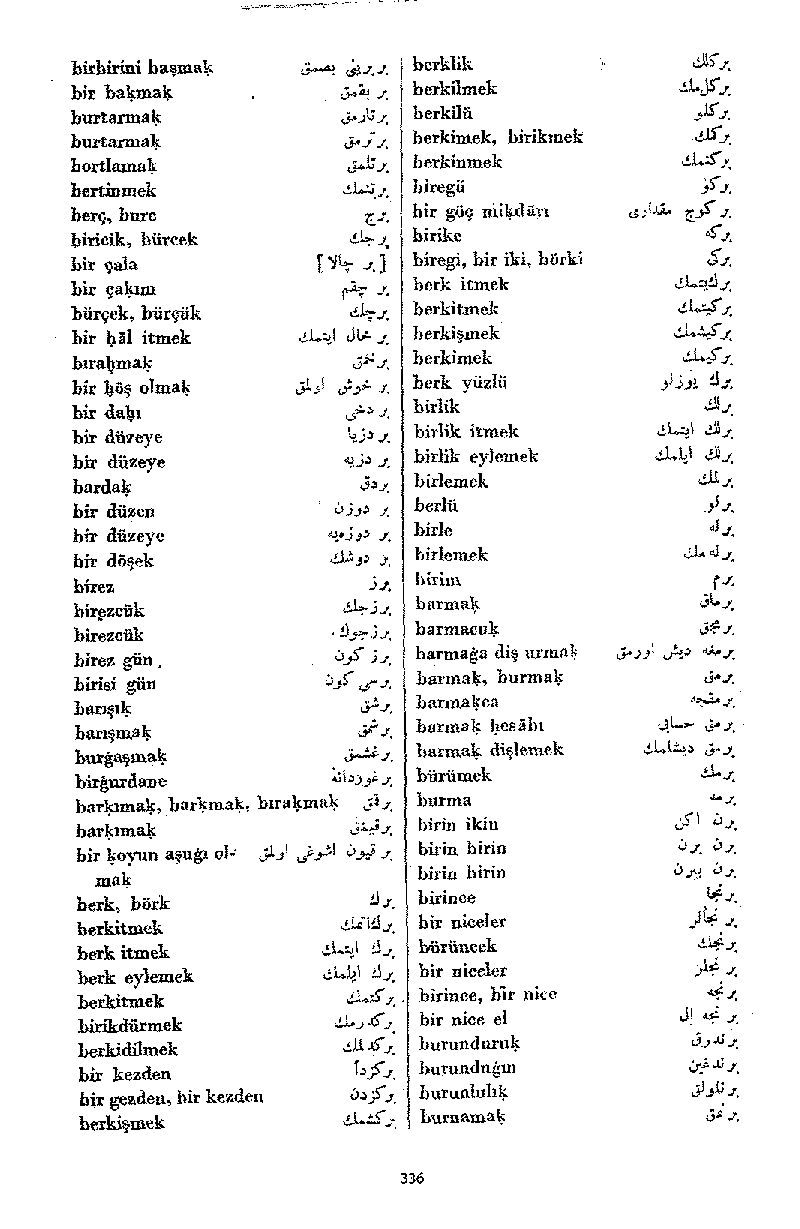 birbirini başmak بر برينى بصمق
bir bakmak بر بقمق
burtarmak برتارمق
burtarmak برترمق
bortlamak برتلمق
bertinmek برتنمك
berç, burc برج
biricik, bürcek برجك
bir çala [بر چالا]
bir çakım بر چقم
bürçek, bürçük برچك
bir ḥāl itmek بر حال ايتمك
bıraḫmak برخمق
bir ḫōş olmak بر خوش اولمق
bir daḫı بر دخى
bir düzeye بر دزيا
bir düzeye بر دزيه
bardaḳ بردق
bir düzen بر دوزن
bir düzeye بر دوزميه
bir döşek بر دوشك
birez برز
birezcük برزجك
birezcük برزجوك
birez gün برز كون
birisi gün برسى كون
barışıḳ برشق
barışmaḳ برشمق
burġaşmaḳ برغشمق
birġurdane برغوردانه
barḳımaḳ, barḳmak, bıraḳmak برقق
barḳımaḳ برقيمق
bir ḳoyun aşuġı ol- بر قيون اشوغى اولمق
mak
berk, börk برك
berkitmek بركاتمك
berk itmek برك ايتمك
berk eylemek برك ايلمك
berkitmek بركتمك
birikdürmek بركدرمك
berkidilmek بركدلمك
bir kezden بركزدأ
bir gezden, bir kezden بركزدن
berkişmek بركشمك
berklik بركلك
berkilmek بركلمك
berkilü بركلو
berkimek, birikmek بركمك
berkinmek بركنمك
biregü بركو
bir güç miḳdārı بر كوج مقدارى
birike بركه
biregi, bir iki, börki بركى
berk itmek برك ايتمك
berkitmek بركيتمك
berkişmek بركيشمك
berkimek بركيمك
berk yüzlü برك يوزلو
birlik برلك
birlik itmek برلك ايتمك
birlik eylemek برلك ايلمك
birlemek برلمك
berlü برلو
birle برله
birlemek برله مك
birim برم
barmaḳ برماق
barmacuḳ برمجق
barmaġa diş urmaḳ برمغه ديش اورمق
barmak, burmak برمق
barmaḳca برمقجه
barmaḳ ḥesābı برمق حسابى
barmaḳ dişlemek برمق ديشلمك
bürümek برمك
burma برمه
birin ikin برن اكن
birin birin برن برن
birin birin برن بيرن
birince برنجا
bir niceler بر نجالر
bürüncek برنجك
bir niceler بر نجلر
birince, bir nice برنجه
bir nice el بر نجه ال
burunduruḳ برندرق
burunduġın برندغين
burunluluḳ برنلولق
burnamaḳ برنمق
336